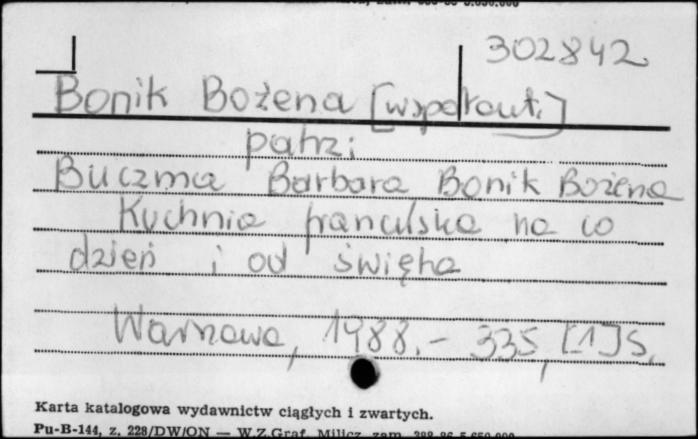 302842
Bonik Bożena [współaut.]
patrz:
Buczma Barbara Bonik Bożena
Kuchnia francuska na co
dzień i od święta
Warszawa, 1988.- 335, [1] s.
Karta katalogowa wydawnictw ciągłych i zwartych.
Pu-B-144, z. 228/DW/ON — W.Z.Graf. Milicz, zam.